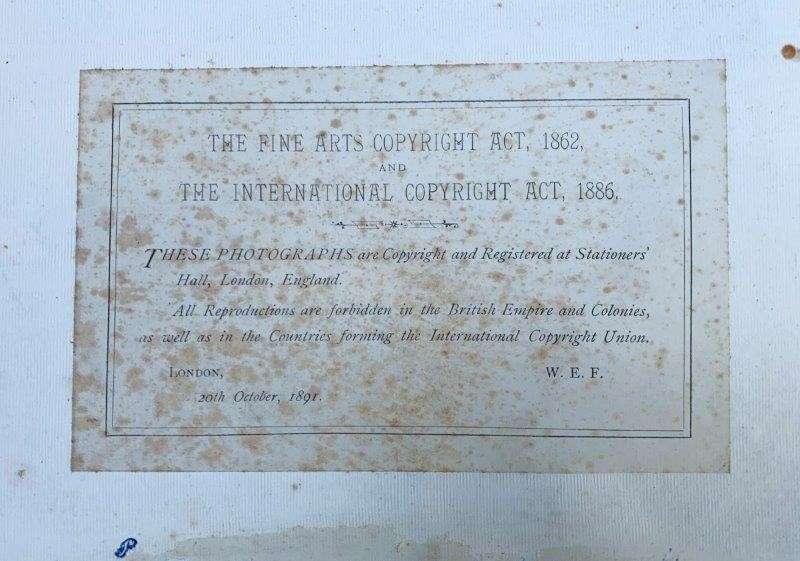 THE FINE ARTS COPYRIGHT ACT, 1862,
AND
THE INTERNATIONAL COPYRIGHT ACT, 1886.
THESE PHOTOGRAPHS are Copyright and Registered at Stationers'
Hall, London, England.
All Reproductions are forbidden in the British Empire and Colonies,
as well as in the Countries forming the International Copyright Union.
LONDON, W. E. F.
20th October, 1891.